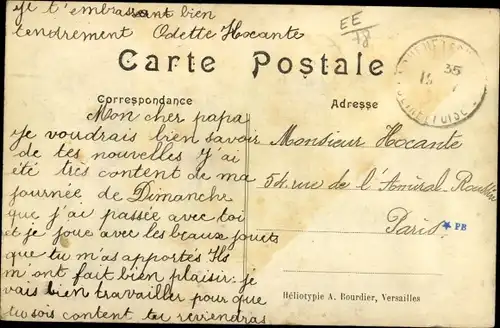 Je t'embrassant bien
tendrement Odette Hocante
EE
78
Carte Postale
Correspondance
Adresse
Mon cher papa
je voudrais bien savoir
de tes nouvelles J'ai
été très content de ma
journée de Dimanche
que j'ai passée avec toi
et je joue avec les beaux jouets
que tu m'as apportés Ils
m'ont fait bien plaisir. je
vais bien travailler pour que
tu sois content tu reviendras
Monsieur Hocante
54. rue de l'Amiral-Roussin
Paris.
* PB
35
SEINE ET OISE
Héliotypie A. Bourdier, Versailles